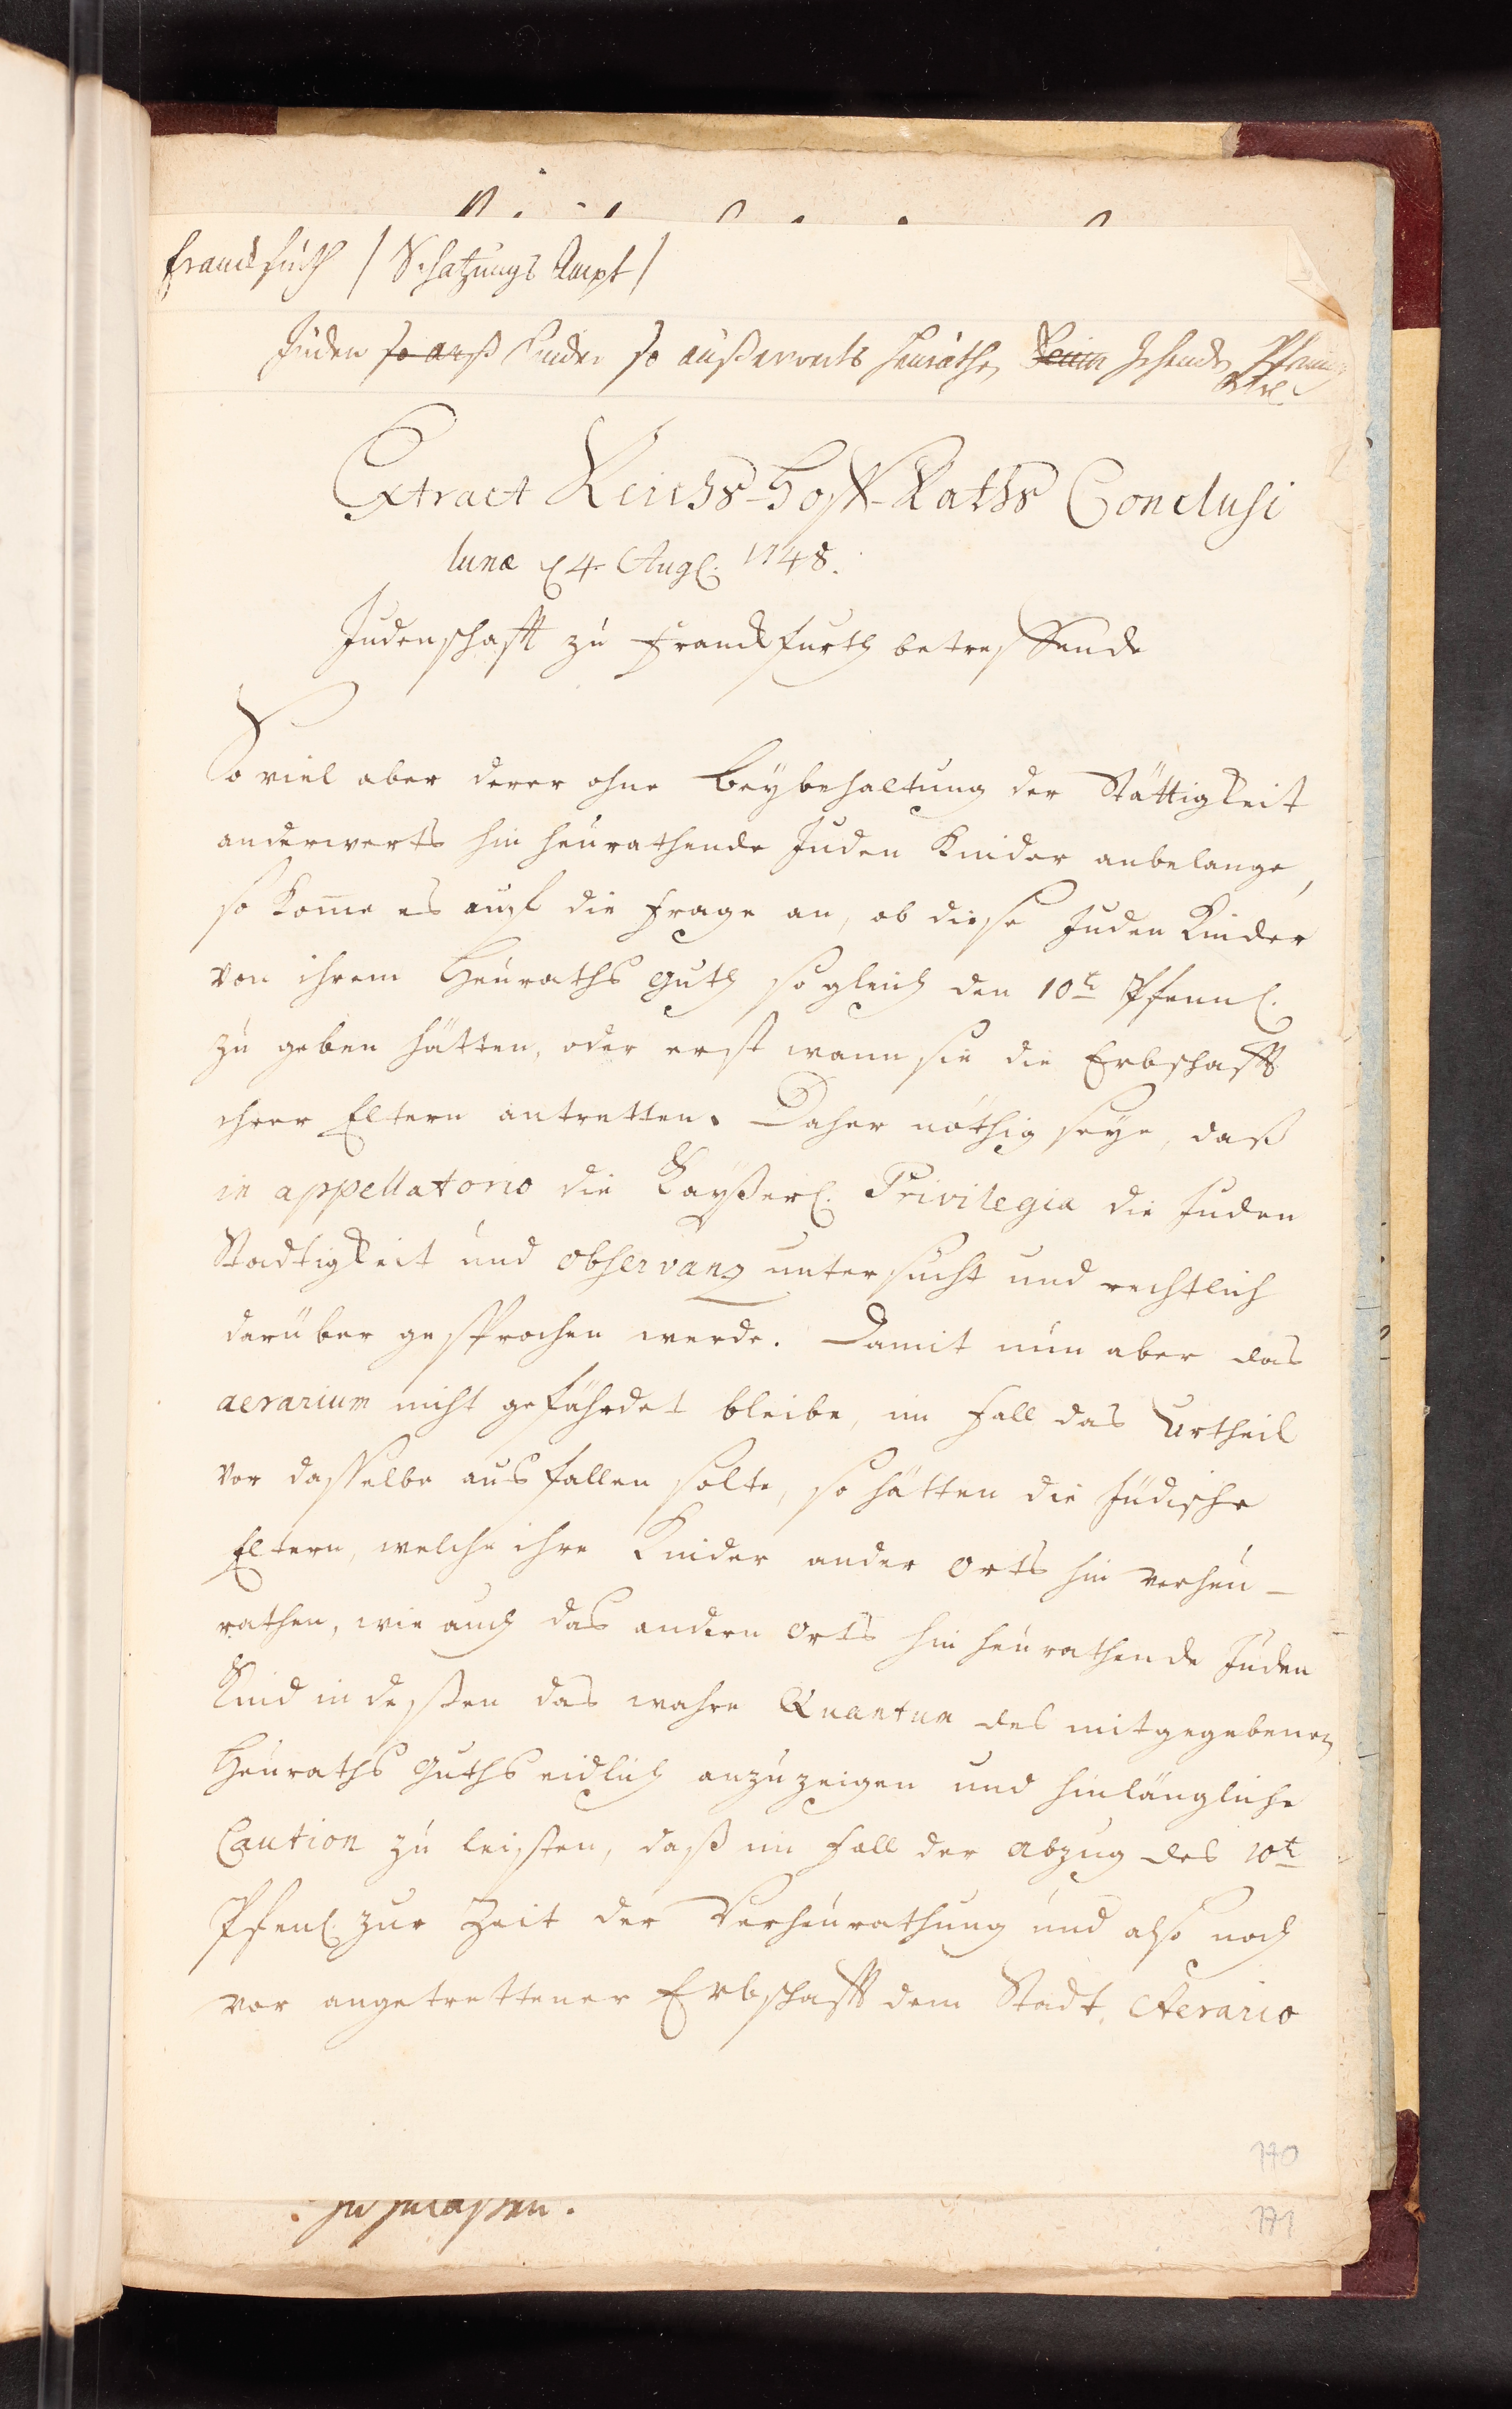 Franckfurth / Schatzungs Ampt /
Juden so auß Kinder so außerwerts heurathen Zehende Pfenning
Extract Reichs-Hoff-Raths Conclusi
lunæ 4 Aug. 1748.
Judenschafft zu Franckfurth betreffende
So viel aber derer ohne Beybehaltung der Stättigkeit
anderwerts hin heurathende Juden Kinder anbelange,
so kom̄e es auf die Frage an, ob diese Juden Kinder
von ihrem Heuraths Guth so gleich den 10t Pfenn.
zu geben hätten, oder erst wann sie die Erbschafft
ihrer Eltern antretten. Daher nöthig seye, daß
in appellatorio die Kayßerl. Privilegia die Juden
Stadtigkeit und observanz untersucht und rechtlich
darüber gesprochen werde. Damit nun aber das
aerarium nicht gefährdet bleibe, im Fall das Urtheil
vor dasselbe ausfallen solte, so hätten die Jüdische
Eltern, welche ihre Kinder ander Orts hin verheu-
rathen, wie auch das andern Orts hin heurathende Juden
Kind in deßen das wahre Quantum des mitgegebenen
Heuraths Guths eidlich anzuzeigen und hinlängliche
Caution zu leisten, daß im Fall der Abzug des 10t
Pfen. zur Zeit der Verheurathung und also noch
vor angetrettener Erbschafft dem Stadt Aerario
170
zu zulaßen.
171